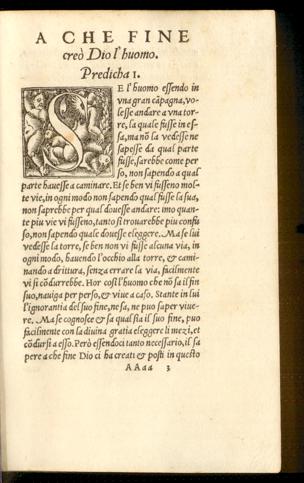 A CHE FINE
creò Dio l'huomo.
Predicha I.
SE l'huomo essendo in
vna gran cāpagna, vo-
lesse andare a vna tor-
re, la quale fusse in es-
sa, ma nō la vedesse ne
sapesse da qual parte
fusse, sarebbe come per
so, non sapendo a qual
parte hauesse a caminare. Et se ben vi fusseno mol-
te vie, in ogni modo non sapendo qual fusse la sua,
non saprebbe per qual douesse andare: imo quan-
te piu vie vi fusseno, tanto si trouarebbe piu confu
so, non sapendo quale douesse eleggere. Ma se lui
vedesse la torre, se ben non vi fusse alcuna via, in
ogni modo, hauendo l'occhio alla torre, & cami-
nando a drittura, senza errare la via, facilmente
vi si cōdurrebbe. Hor cosi l'huomo che nō sa il fin
suo, nauiga per perso, & viue a caso. Stante in lui
l'ignorantia del suo fine, ne sa, ne puo saper viue-
re. Ma se cognosce & sa qual sia il suo fine, puo
facilmente con la diuina gratia eleggere li mezi, et
cōdursi a esso. Però essendoci tanto necessario, il sa
pere a che fine Dio ci ha creati & posti in questo
AAaa 3